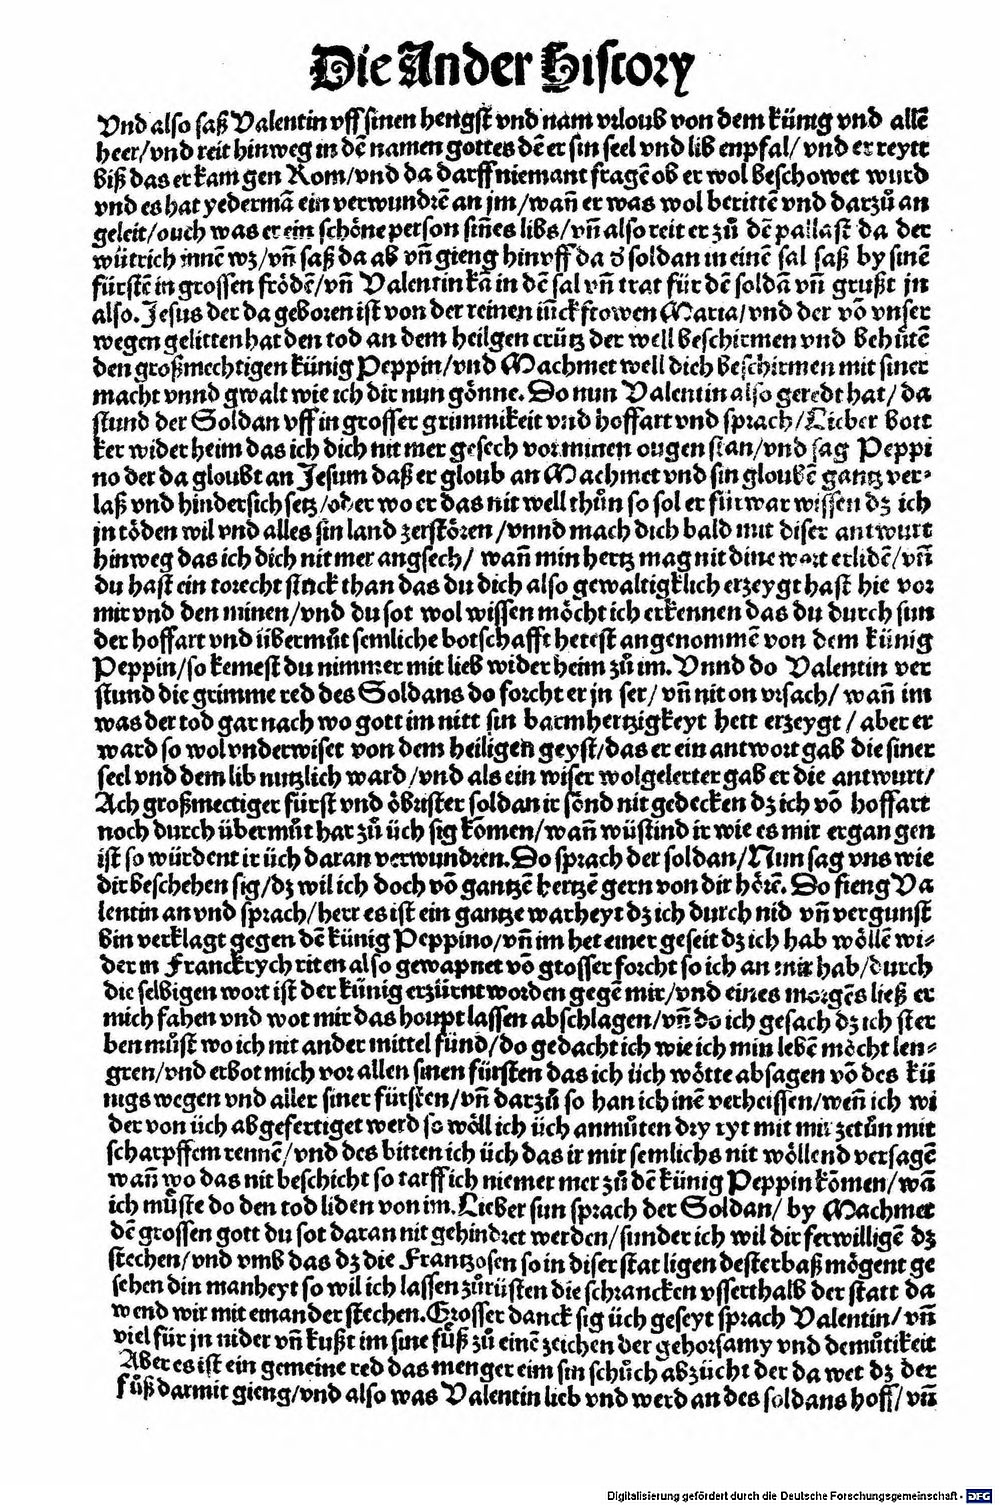 Die Ander History
Vnd also saß Valentin vff sinen hengst vnd nam vrloub von dem künig vnd allē
heer/vnd reit hinweg in dē namen gottes dē er sin seel vnd lib enpfal/ vnd er reytt
biß das er kam gen Rom/vnd da darff niemant fragē ob er wol beschowet wurd
vnd es hat yedermā ein verwundrē an jm/wañ er was wol berittē vnd darzů an
geleit/ouch was er ein schöne person sines libs/vñ also reit er zů dē pallast da der
wütrich innē wz/vñ saß da ab vñ gieng hinvff da d̄ soldan in einē sal saß by sinē
fürstē in grossen frödē/vñ Valentin kā in dē sal vñ trat für dē soldā vñ grußt jn
also. Jesus der da geboren ist von der reinen iūckfrowen Maria/vnd der vō vnser
wegen gelitten hat den tod an dem heilgen crütz der well beschirmen vnd behütē
den großmechtigen künig Peppin/vnd Machmet well dich beschirmen mit siner
macht vnnd gwalt wie ich dir nun gönne. Do nun Valentin also geredt hat/ da
stund der Soldan vff in grosser grimmikeit vnd hoffart vnd sprach/Lieber bott
ker wider heim das ich dich nit mer gesech vor minen ougen stan/vnd sag Peppi
no der da gloubt an Jesum daß er gloub an Machmet vnd sin gloubē gantz ver⸗
laß vnd hindersich setz/oder wo er das nit well thůn so sol er fürwar wissen dz ich
jn töden wil vnd alles sin land zerstören/vnnd mach dich bald mit diser antwurt
hinweg das ich dich nit mer angsech/ wañ min hertz mag nit dine wort erlidē/vñ
du hast ein torecht stuck than das du dich also gewaltigklich erzeygt hast hie vor
mir vnd den minen/vnd du sot wol wissen möcht ich erkennen das du durch sun
der hoffart vnd übermůt semliche botschafft hetest angenommē von dem künig
Peppin/so kemest du nimmer mit lieb wider heim zů im. Vnnd do Valentin ver
stund die grimme red des Soldans do forcht er jn ser/ vñ nit on vrsach/ wañ im
was der tod gar nach wo gott im nitt sin barmhertzigkeyt hett erzeygt / aber er
ward so wol vnderwiset von dem heiligen geyst/das er ein antwort gab die siner
seel vnd dem lib nutzlich ward /vnd als ein wiser wolgelerter gab er die antwurt/
Ach großmectiger fürst vnd öbrister soldan ir sönd nit gedecken dz ich vō hoffart
noch durch übermůt har zů üch sig komen/wañ wüstind ir wie es mir ergan gen
ist so würdent ir üch daran verwundren. Do sprach der soldan/Nun sag vns wie
dir beschehen sig/dz wil ich doch vō gantzē hertzē gern von dir hörē. Do fieng Va
lentin an vnd sprach/herr es ist ein gantze warheyt dz ich durch nid vñ vergunst
bin verklagt gegen dē künig Peppino/vñ im het einer geseit dz ich hab wöllē wi⸗
der in Franckrych riten also gewapnet vō grosser forcht so ich an mir hab/durch
die selbigen wort ist der künig erzürnt worden gegē mir/vnd eines morgēs ließ er
mich fahen vnd wot mir das houpt lassen abschlagen/vñ do ich gesach dz ich ster
ben můst wo ich nit ander mittel fünd/do gedacht ich wie ich min lebē möcht len⸗
gren/vnd erbot mich vor allen sinen fürsten das ich üch wötte absagen vō des kü
nigs wegen vnd aller siner fürsten/vñ darzů so han ich inē verheissen/wen̄ ich wi
der von üch abgefertiget werd so wöll ich üch anmůten dry ryt mit mir zetůn mit
scharpffem rennē/vnd des bitten ich üch das ir mir semlichs nit wöllend versagē
wañ wo das nit beschicht so tarff ich niemer mer zů dē künig Peppin komen/wā
ich můste do den tod liden von im. Lieber sun sprach der Soldan/ by Machmet
dē grossen gott du sot daran nit gehindret werden/sunder ich wil dir ferwilligē dz
stechen/vnd vmb das dz die Frantzosen so in diser stat ligen desterbaß mögent ge
sehen din manheyt so wil ich lassen zůrüsten die schrancken vsserthalb der statt da
wend wir mit einander stechen. Grosser danck sig üch geseyt sprach Valentin/ vñ
viel für jn nider vñ kußt im sine füß zů einē zeichen der gehorsamy vnd demůtikeit
Aber es ist ein gemeine red das menger eim sin schůch abzücht der da wet dz der
fůß darmit gieng/vnd also was Valentin lieb vnd werd an des soldans hoff/ vñ
Digitalisierung gefördert durch die Deutsche Forschungsgemeinschaft - DFG